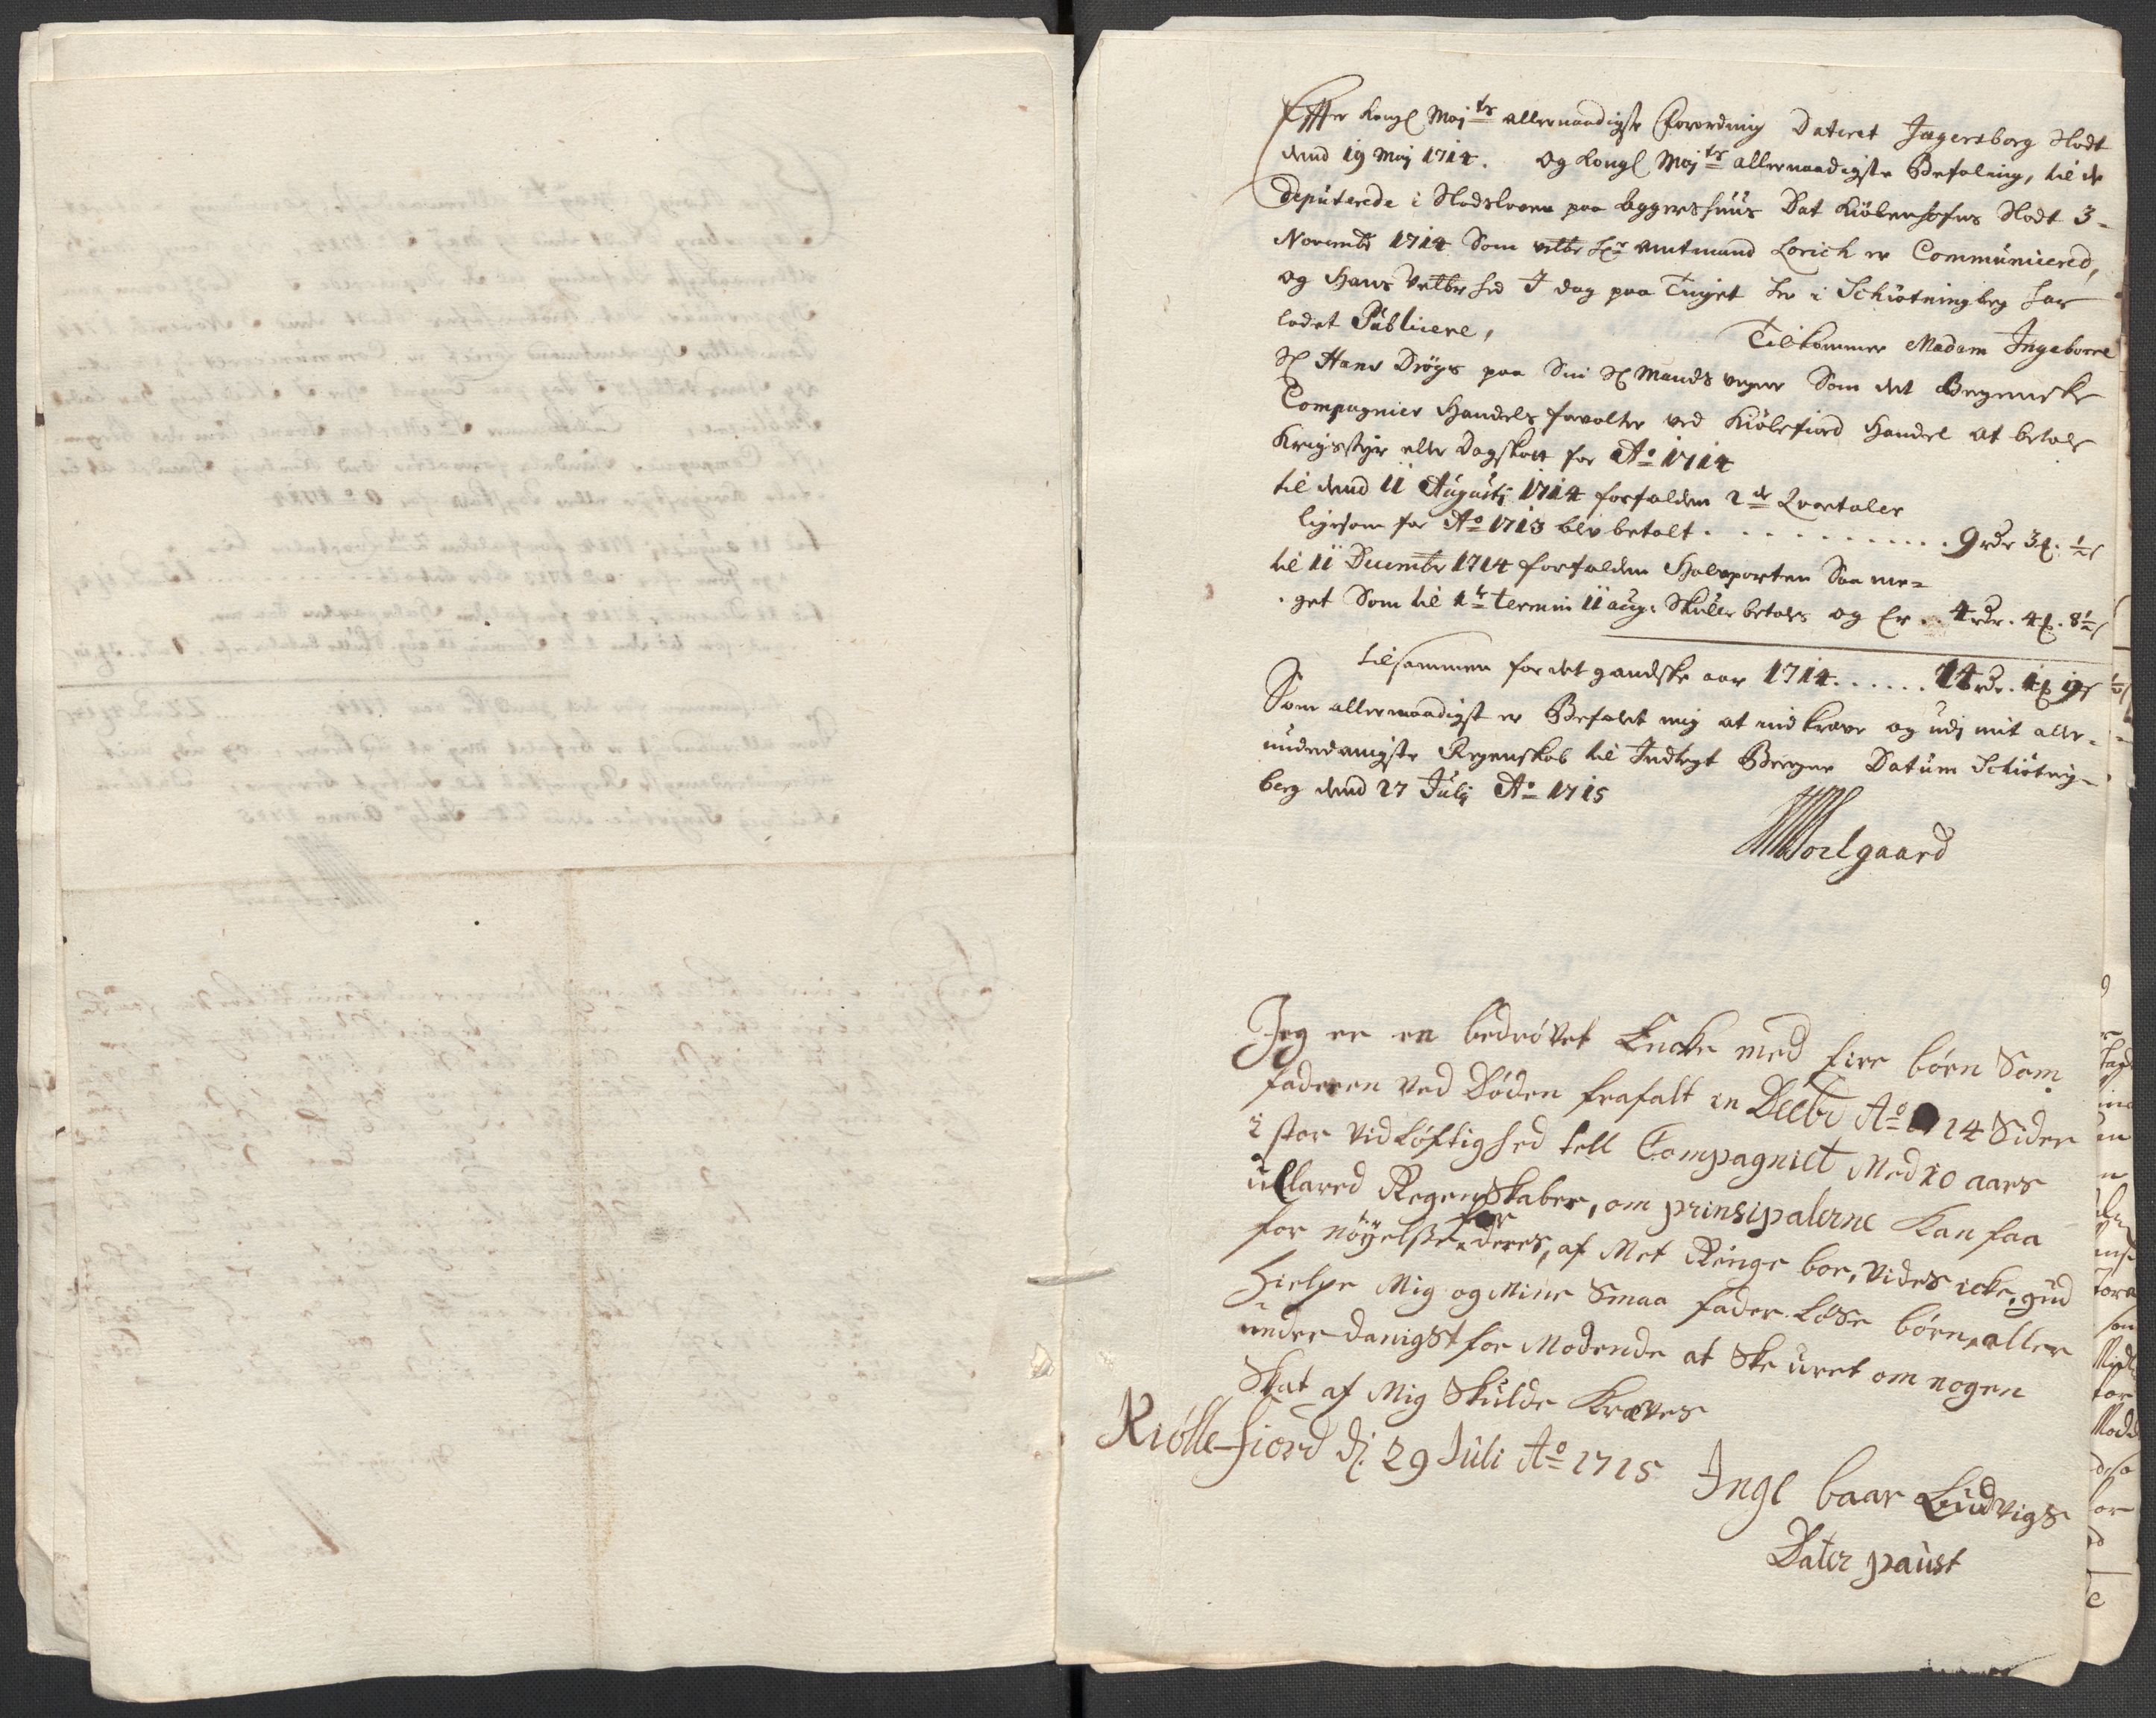 Effter Kongl Maj^ts allernaadigste forordning Dateret Jægersborg Slodt
dend 19 Maj 1714. og Kongl Maj^ts allernaadigste Befaling, til de
Deputerede i Slodsloven paa Aggershuus Dat Kiöbenhafns Slodt 3-
Novembr 1714 Som velbr Hr Amtmand Lorich er Communicered,
og Hans Velbrhed I dag paa Tinget her i Schiötningberg har
ladet Publicere, Tilkommer Madam Ingeborre
Sl Hans Dröges paa Sin Sl Mands vegne Som det Bergenske
Compagnies Handels forvalter ved Kiölefiord Handel at betale
Krigsstyr eller Dagskatt for Aᵒ 1714
til dend 11 Augusti 1714 forfalden 2de Qvartaler
ligesom for Aᵒ 1713 blev betalt . . . . . . . . . . . . 9 rdr 3 ₰. ½ s
til 11 Decembr 1714 forfalden Halvparten Saa me=
get Som til 1te termin 11 aug: Skulle betales og Er . . 4 rdr. 4 ₰. 8½ s
tilsammen for det gandske aar 1714 . . . . . . 14 rdr. 1 ₰ 9 s
Som allernaadigst er Befalet mig at indkræve og udj mit aller-
underdanigste Regenskab til Indtegt Beregne Datum Schiötning-
berg dend 27 Julij Aᵒ 1715
Wolgaard
Jeg er en bedröVet Encke med fire börn Som
faderen Ved Döden frafalt in Decbr Aᵒ 1714 Sider
i stor Vidlöftighed tell Compagniet Med 10 aars
uklared Regenskaber, om prinsipalerne Kan faa
for nöyelsse for deres, af Met Ringe boe, Vides icke, gud
hielpe Mig og Mine Smaa fader löse börn, aller
under danigst for Modende at Ske uret om nogen
Skat af Mig Skulde Kræves
Kiölle-fiord d: 29 Juli Aᵒ 1715 Inge baar Ludvigs
Dater paust